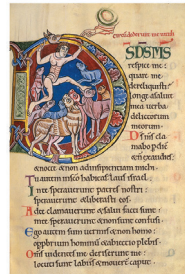 DS DS MS
respice me:
quare me
dereliquisti:
longe a salute
mea verba
delictorum
meorum.
Ds ms cla
mabo p die
& n exaudies.
& nocte & non ad insipientiam michi.
Tu autem in sco habitas: laus israel.
In te speraverunt patres nostri:
speraverunt & liberasti eos.
Ad te clamaverunt & salvi facti sunt:
in te speraverunt & non sunt confusi.
Ego autem sum vermis & non homo:
opprbrium hominu & abiectio plebis.
Oms videntes me deriserunt me:
locuti sunt labiis & moverunt caput.